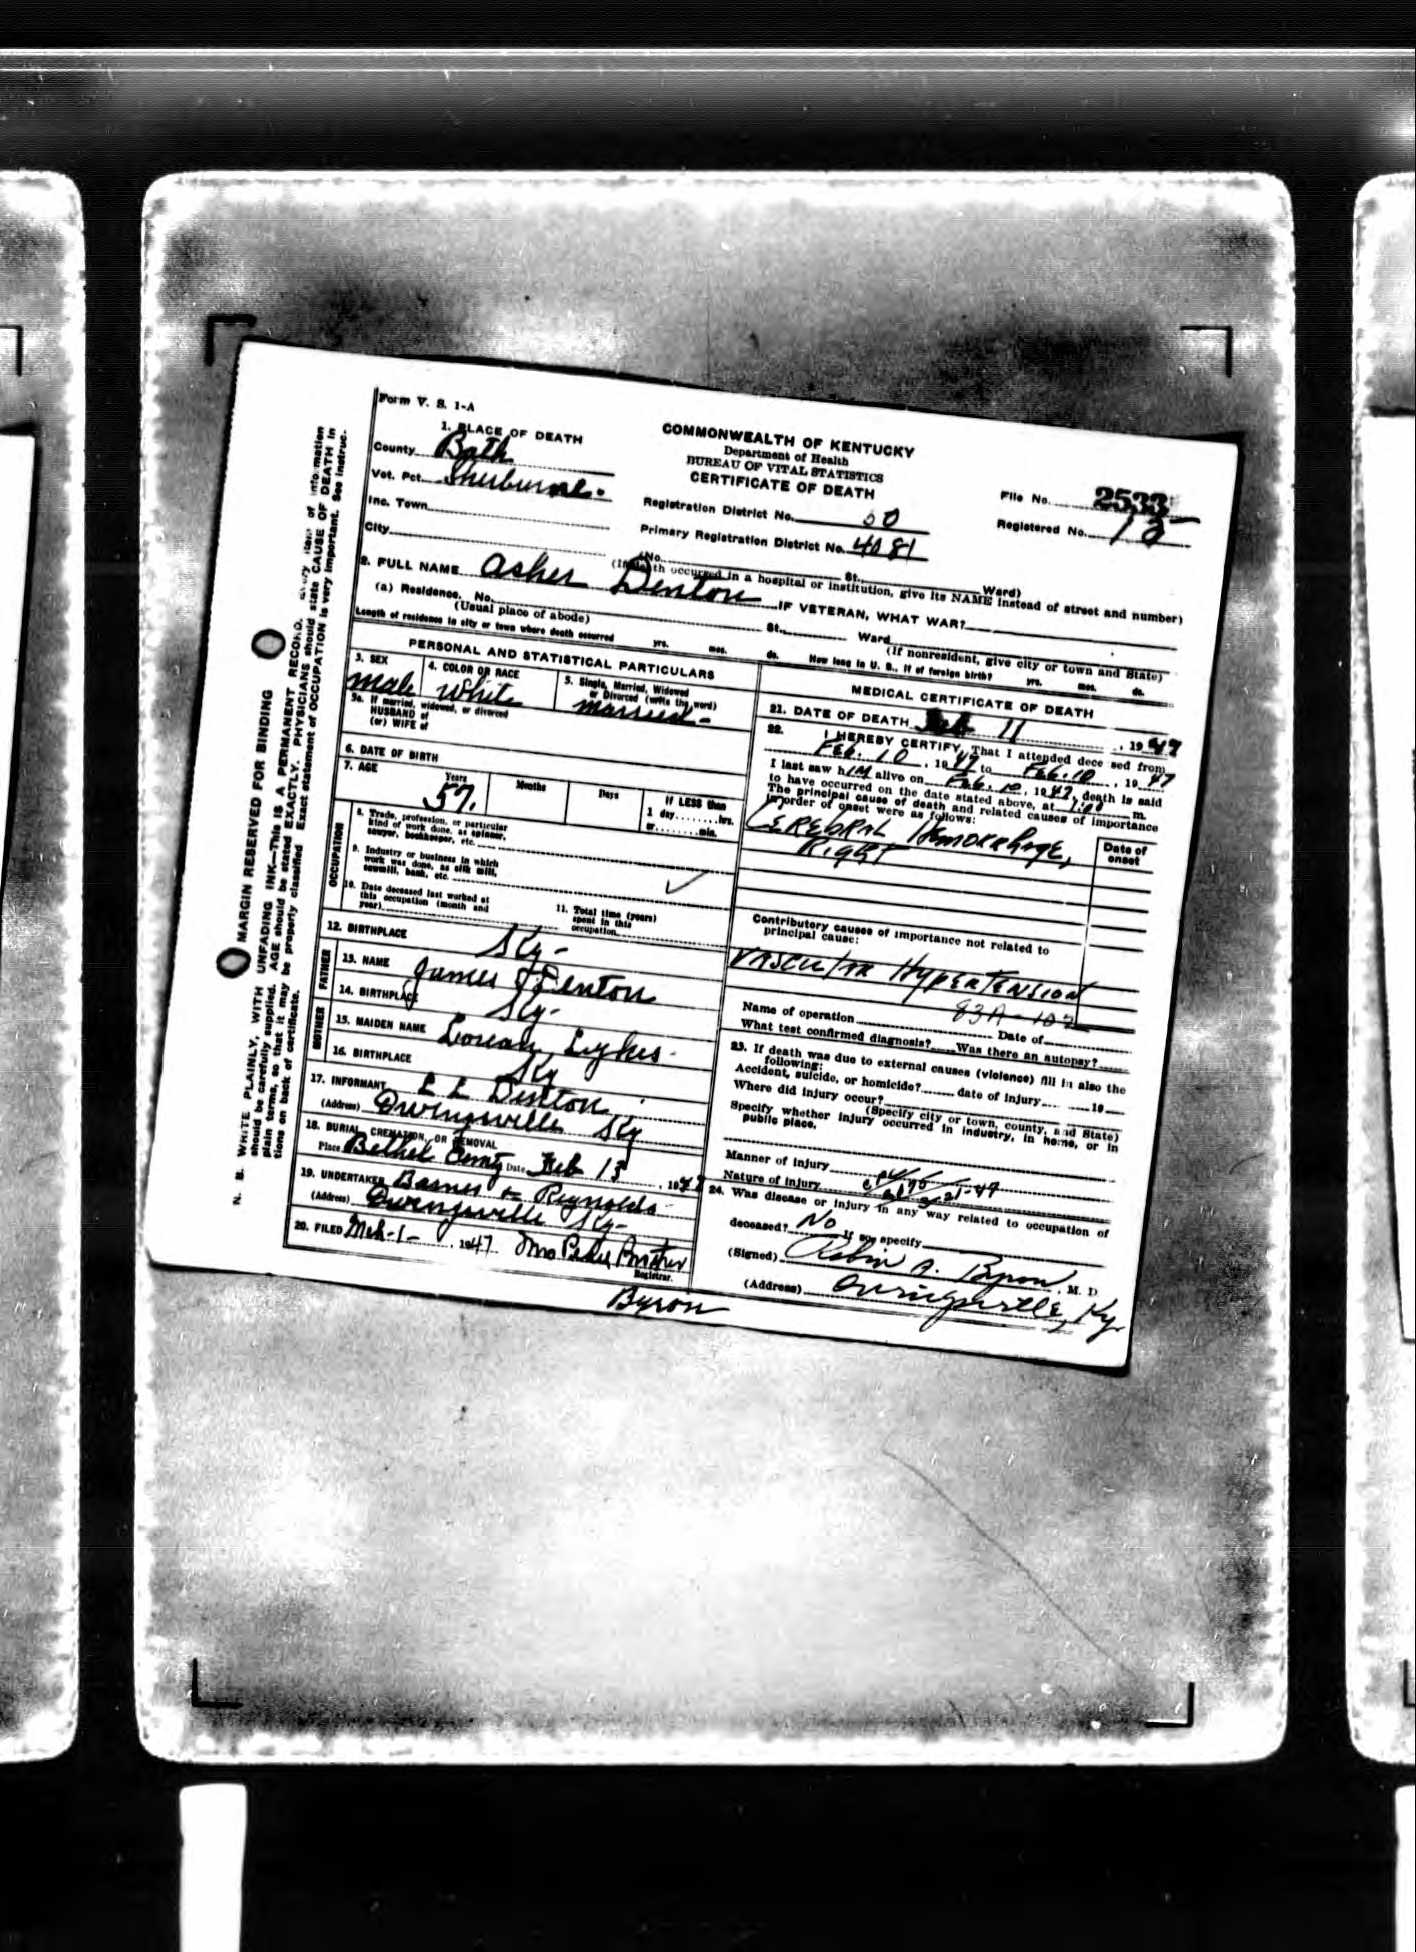 Form V. S. 1-A
COMMONWEALTH OF KENTUCKY
Department of Health
BUREAU OF VITAL STATISTICS
CERTIFICATE OF DEATH
1. PLACE OF DEATH
County Bath
Vot. Pct. Sherburne.
Inc. Town
City
Registration District No. 60
Primary Registration District No. 4081
File No. 2533
Registered No. 13
(No. St. Ward)
(If death occurred in a hospital or institution, give its NAME instead of street and number)
2. FULL NAME Asher Denton IF VETERAN, WHAT WAR?
(a) Residence. No. St. Ward
(Usual place of abode) (If nonresident, give city or town and State)
Length of residence in city or town where death occurred yrs. mos. ds. How long in U. S., if of foreign birth? yrs. mos. ds.
PERSONAL AND STATISTICAL PARTICULARS
3. SEX 4. COLOR OR RACE 5. Single, Married, Widowed
or Divorced (write the word)
male white married-
5a. If married, widowed, or divorced
HUSBAND of
(or) WIFE of
6. DATE OF BIRTH
7. AGE Years Months Days If LESS than
57. 1 day hrs.
or min.
OCCUPATION
8. Trade, profession, or particular
kind of work done, as spinner,
sawyer, bookkeeper, etc.
9. Industry or business in which
work was done, as silk mill,
sawmill, bank, etc.
10. Date deceased last worked at
this occupation (month and
year)
11. Total time (years)
spent in this
occupation
12. BIRTHPLACE Ky-
FATHER
13. NAME James Denton
14. BIRTHPLACE Ky-
MOTHER
15. MAIDEN NAME
16. BIRTHPLACE Ky
17. INFORMANT L L Denton
(Address) Owingsville Ky
18. BURIAL, CREMATION, OR REMOVAL
Place Bethel Cemty Date Feb 13, 1947
19. UNDERTAKER Barnes & Reynolds
(Address) Owingsville Ky-
20. FILED Mch-1-, 1947.
Registrar.
Byron
MEDICAL CERTIFICATE OF DEATH
21. DATE OF DEATH Feb 11, 1947
22. I HEREBY CERTIFY, That I attended deceased from
Feb. 10, 1947 to Feb. 10, 1947
I last saw him alive on Feb. 10, 1947, death is said
to have occurred on the date stated above, at 1:00 m.
The principal cause of death and related causes of importance
in order of onset were as follows:
Date of
onset
CEREBRAL HEMORRHAGE,
RIGHT
Contributory causes of importance not related to
principal cause:
VASCULAR HYPERTENSION
83A-102
Name of operation Date of
What test confirmed diagnosis? Was there an autopsy?
23. If death was due to external causes (violence) fill in also the
following:
Accident, suicide, or homicide? date of injury 19
Where did injury occur?
(Specify city or town, county, and State)
Specify whether injury occurred in industry, in home, or in
public place.
Manner of injury
Nature of injury
24. Was disease or injury in any way related to occupation of
deceased? No If so, specify
(Signed) Robin A. Byron, M. D.
(Address) Owingsville, Ky.
MARGIN RESERVED FOR BINDING
N. B. WRITE PLAINLY, WITH UNFADING INK—THIS IS A PERMANENT RECORD. Every item of information
should be carefully supplied. AGE should be stated EXACTLY. PHYSICIANS should state CAUSE OF DEATH in
plain terms, so that it may be properly classified. Exact statement of OCCUPATION is very important. See instruc-
tions on back of certificate.